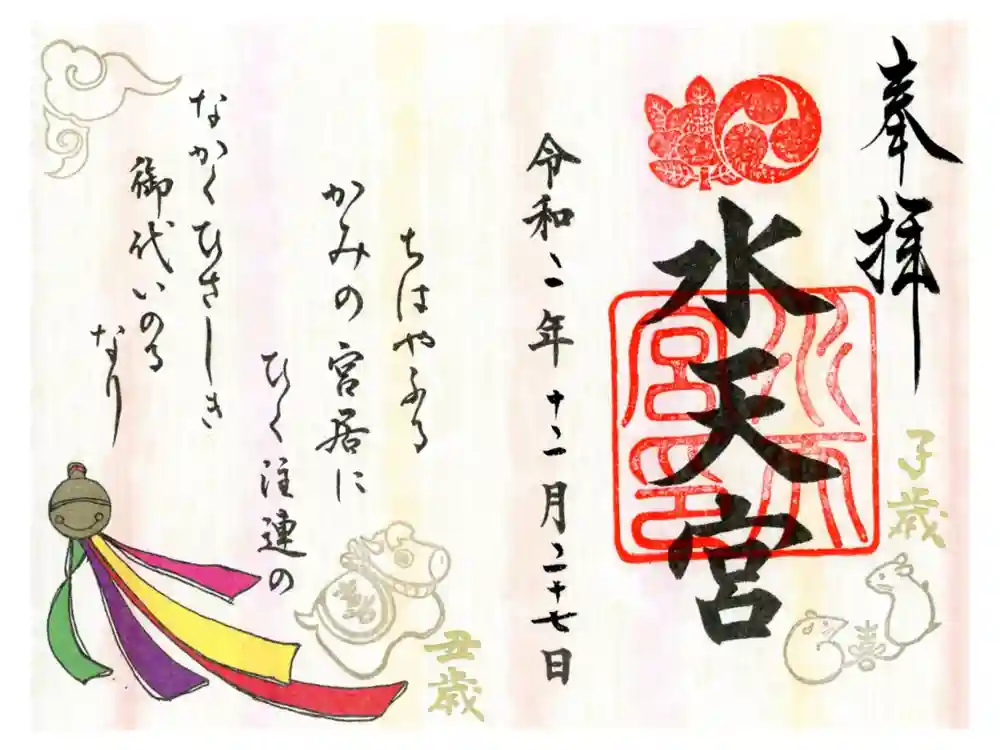 奉拝
水天宮
水天宮印
令和二年十二月二十七日
子歳
喜
ちはやふる
かみの宮居に
ひく注連の
なかくひさしき
御代いのる
なり
丑歳